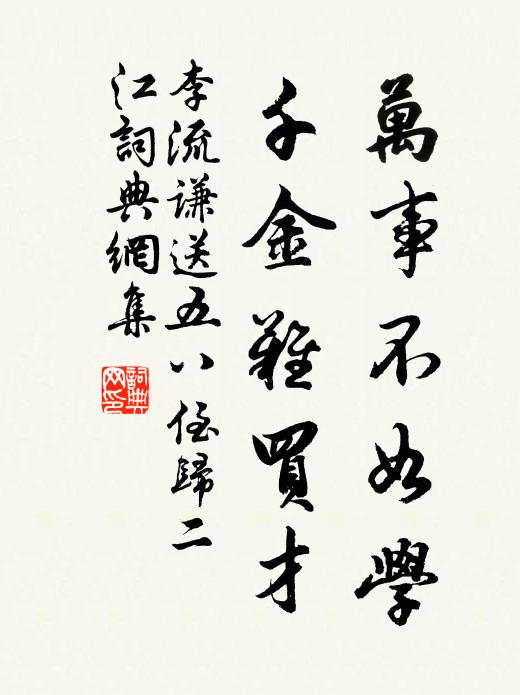 萬事不如學
千金難買才
李流謙送五八侄歸二
江詞典網集
詞典網印